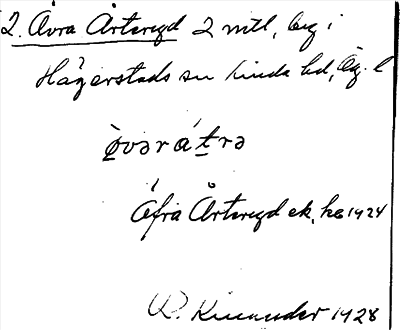 2. Åvra Årteryd 2 mtl, beg i
Hägerstads sn Kinda hd, Ög. l
ǫ̀vərátrə
Åfra Årteryd ek. ka 1924
R. Kinander 1928